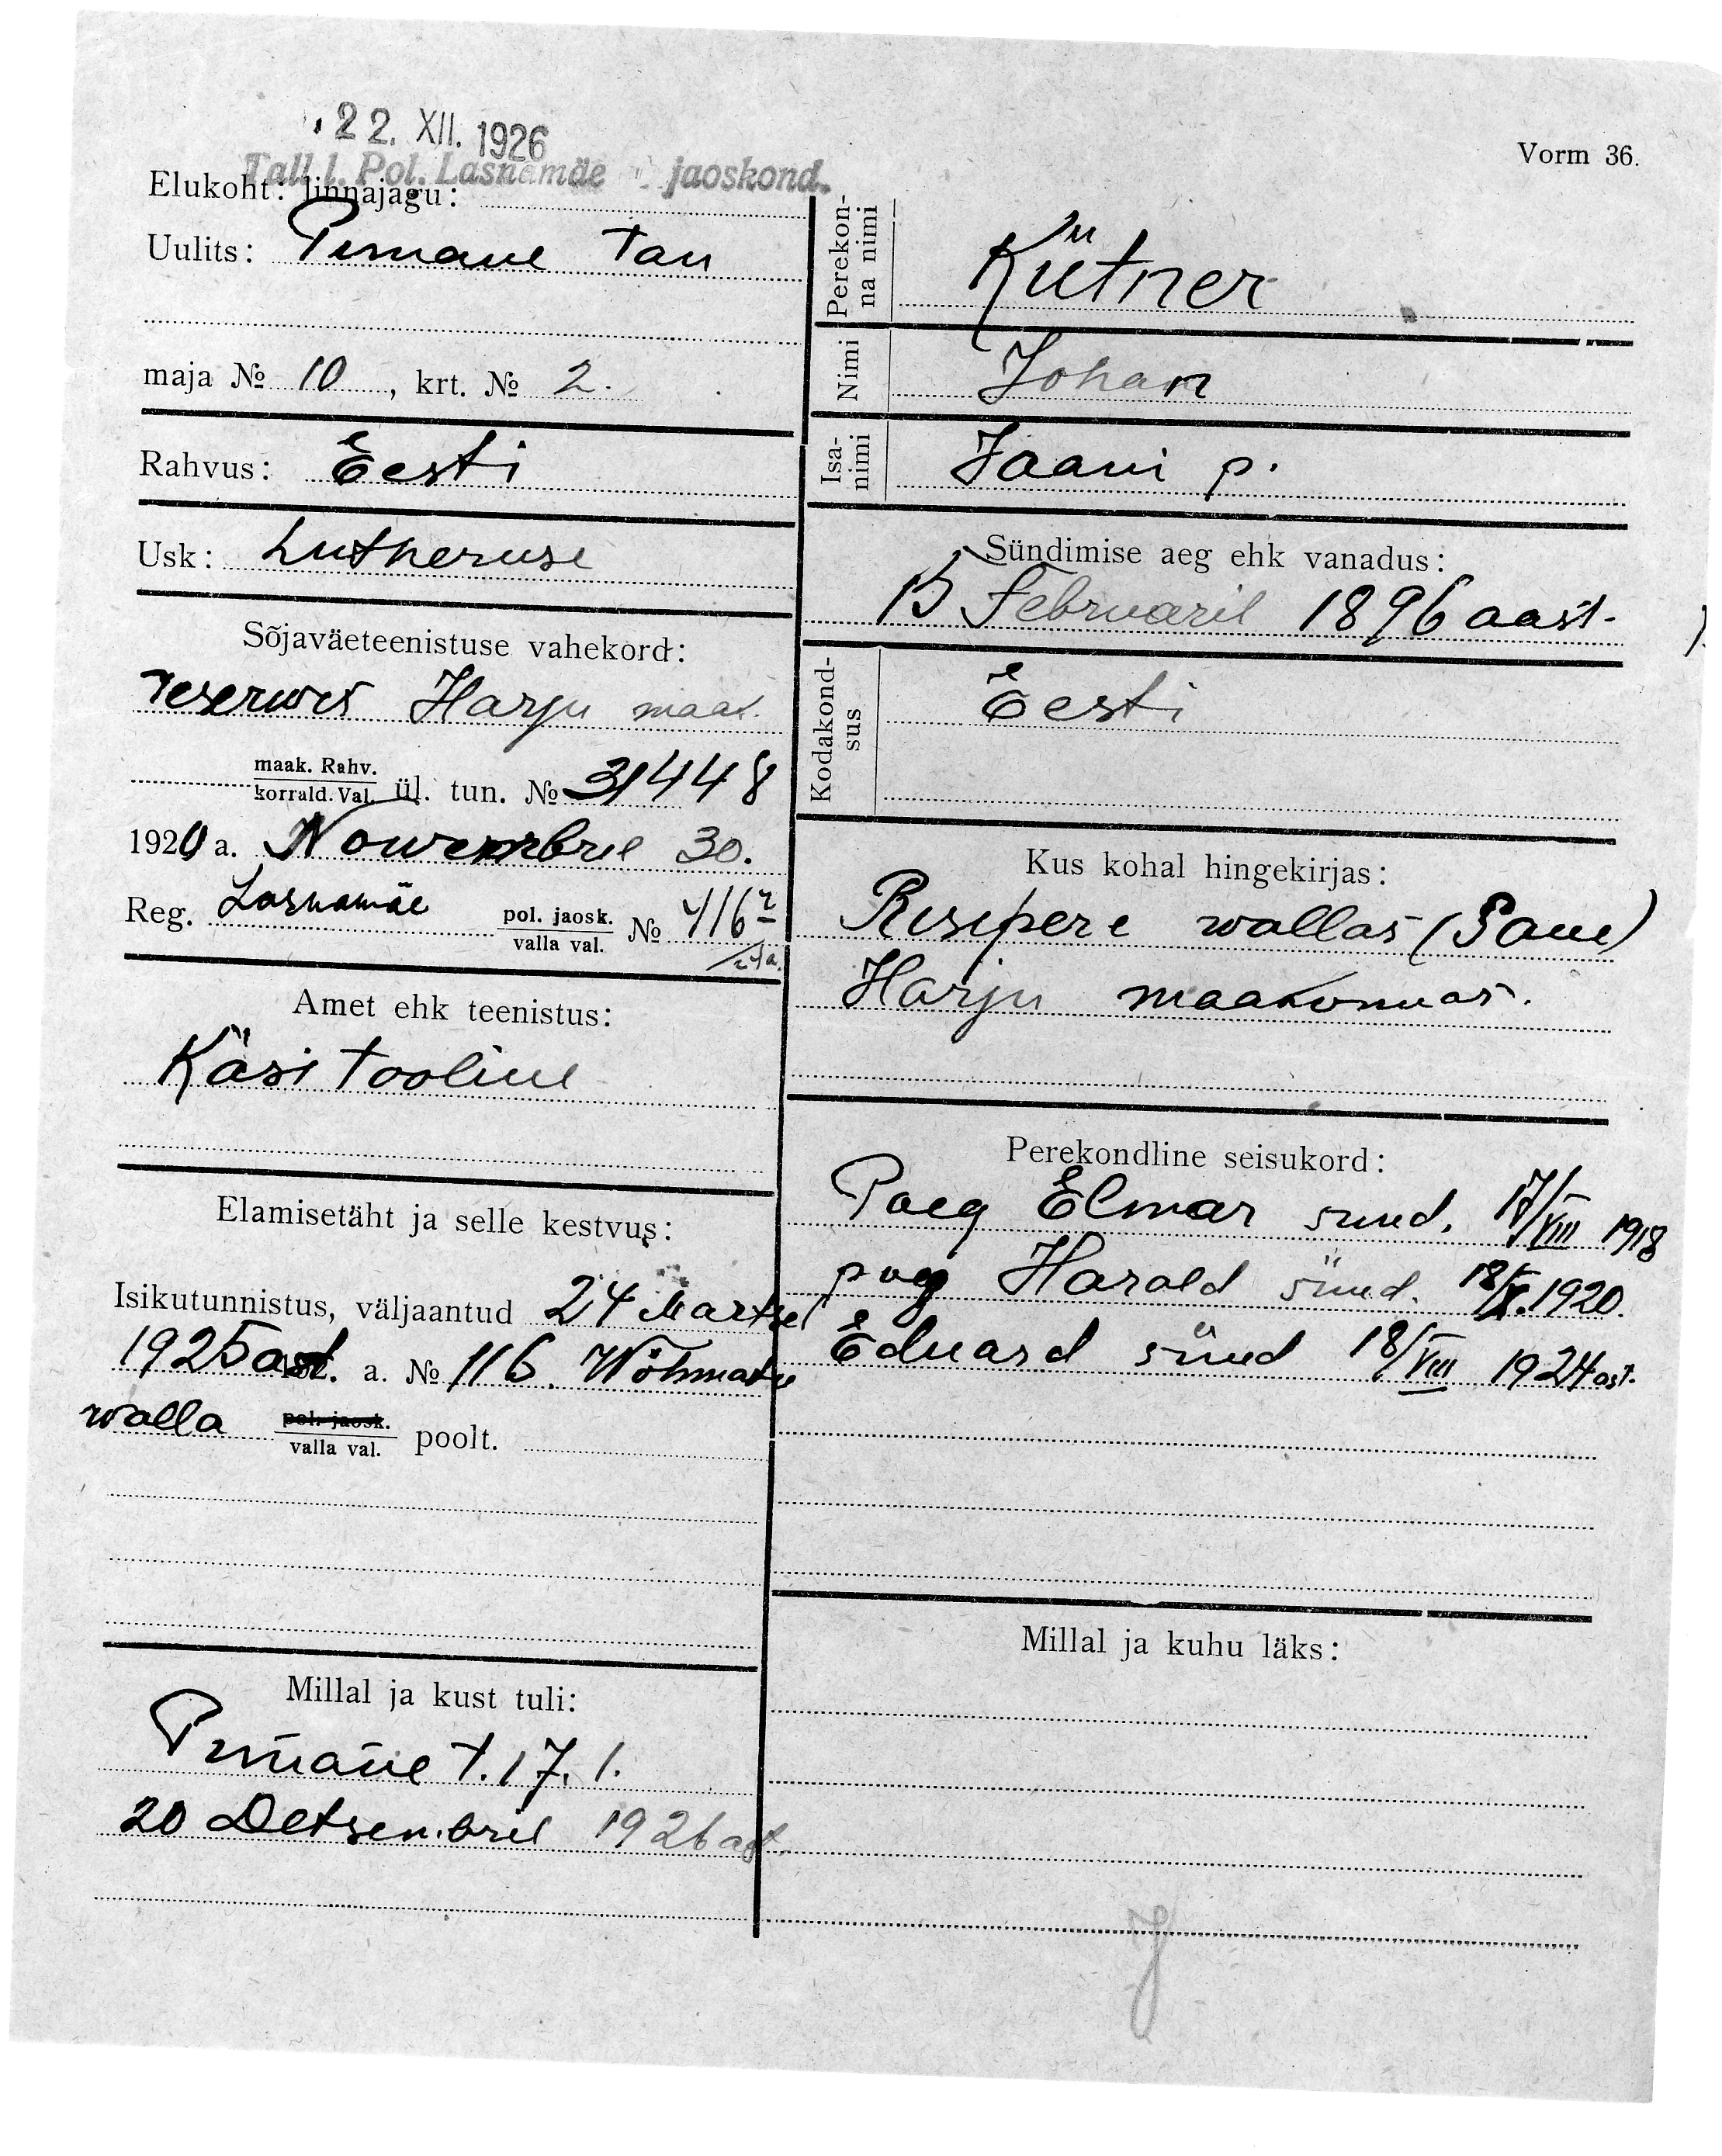 22. XII. 1926
Vorm 36.
Tall. l. Pol. Lasnamäe jaoskond.
Elukoht: linnajagu:
Uulits: tan
maja № 10, krt. № 2.
Rahvus: Eesti
Usk: Lutheruse
Sõjaväeteenistuse vahekord:
reserwis Harju maak.
maak. Rahv.
korrald. Val. ül. tun. № 31448
1920 a. Nowembril 30.
Reg. Lasnamäe pol. jaosk. № 4162
valla val.
24a.
Amet ehk teenistus:
Käsitooline
Elamisetäht ja selle kestvus:
Isikutunnistus, väljaantud 24 Martsel
1925 ast. a. № 116. Wõhmatu
walla pol. jaosk.
valla val. poolt.
Millal ja kust tuli:
t. 17. 1.
20 Detsembril 1926 ast.
Perekonna nimi
Kütner
Nimi Johan
Isanimi Jaani p.
Sündimise aeg ehk vanadus:
15 Februaril 1896 aast.
Kodakondsus Eesti
Kus kohal hingekirjas:
Risipere wallas (Saue)
Harju maakonnas.
Perekondline seisukord:
Poeg Elmar sünd. 17/VIII 1918
poeg Harald sünd. 18/X. 1920.
Eduard sünd 18/VIII 1924 ast.
Millal ja kuhu läks: